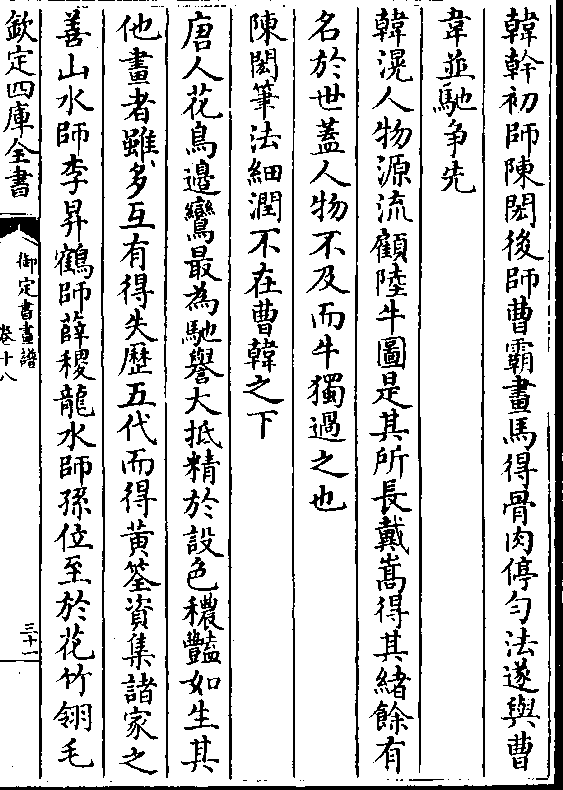 韓幹初師陳閎後師曹霸畫馬得骨肉停勻法遂與曹
韋並馳争先
韓滉人物源流顧陸牛圖是其所長戴嵩得其緒餘有
名於世蓋人物不及而牛獨過之也
陳閎筆法細潤不在曹韓之下
唐人花鳥邊鸞最為馳譽大抵精於設色穠豔如生其
他畫者雖多互有得失歷五代而得黄筌資集諸家之
善山水師李昇鶴師薛稷龍水師孫位至於花竹翎毛
欽定四庫全書
御定書畫譜
卷十八
三十一